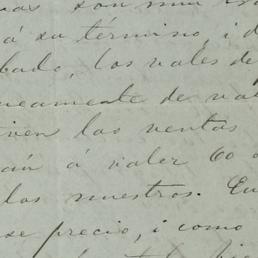 son mui
á su término, i d
bado, los vales de
neamente de val
iven las ventas
án á valer 60 o
los nuestros. En
se precio, i como